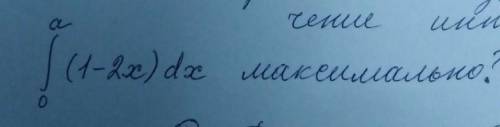 чение
∫₀ᵃ (1-2x)dx максимально?